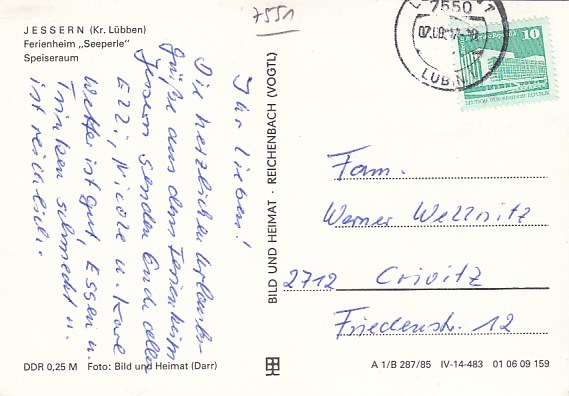 7551
JESSERN (Kr. Lübben)
Ferienheim „Seeperle“
Speiseraum
Ihr Lieben!
Die herzlichen Urlaubs-
grüße aus dem Ferienheim
Jessern senden Ende allen
Ezzi, Nicole u. Karl
Wetter ist gut, Essen u.
Trinken schmeckt u.
ist reichlich.
BILD UND HEIMAT · REICHENBACH (VOGTL)
7550
10
DEUTSCHE DEMOKRATISCHE REPUBLIK
Fam.
Werner Wellnitz
2712 Crivitz
Friedenstr. 12
DDR 0,25 M Foto: Bild und Heimat (Darr)
A 1/B 287/85 IV-14-483 01 06 09 159